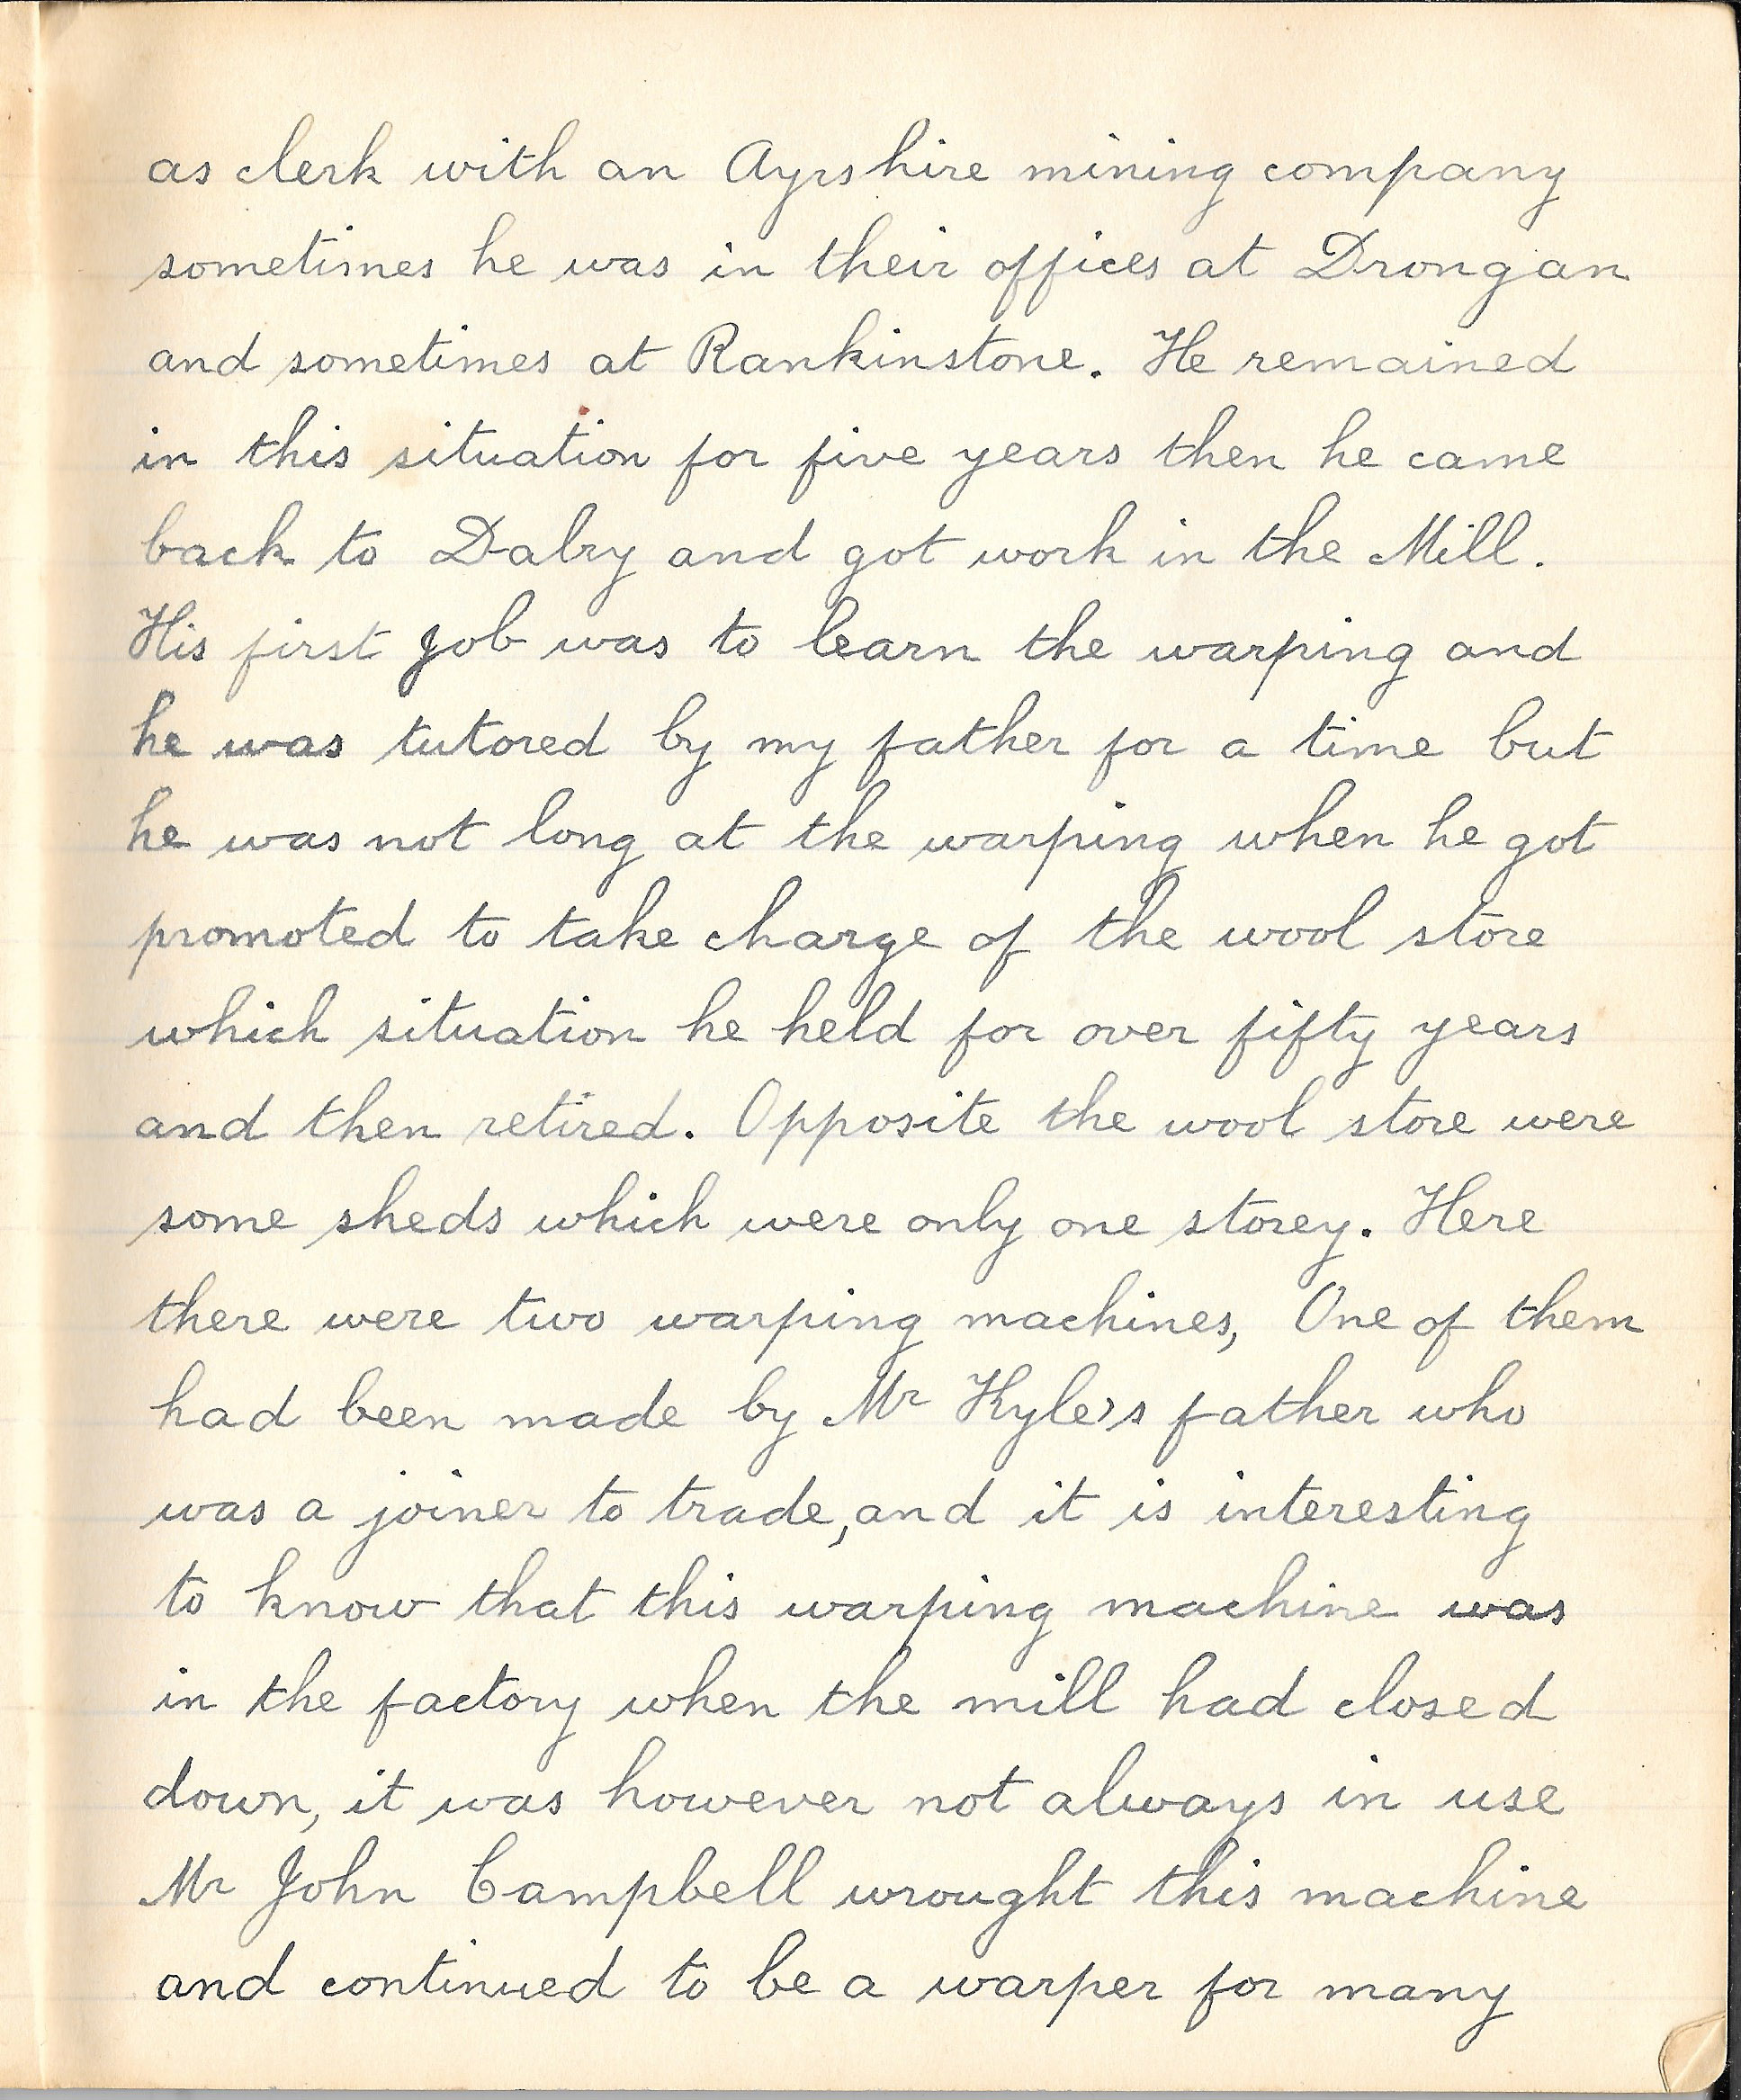 as clerk with an Ayrshire mining company
sometimes he was in their offices at Drongan
and sometimes at Rankinstone. He remained
in this situation for five years then he came
back to Dalry and got work in the Mill.
His first job was to learn the warping and
he was tutored by my father for a time but
he was not long at the warping when he got
promoted to take charge of the wool store
which situation he held for over fifty years
and then retired. Opposite the wool store were
some sheds which were only one storey. Here
there were two warping machines, One of them
had been made by Mr Kyle's father who
was a joiner to trade, and it is interesting
to know that this warping machine was
in the factory when the mill had closed
down, it was however not always in use
Mr John Campbell wrought this machine
and continued to be a warper for many